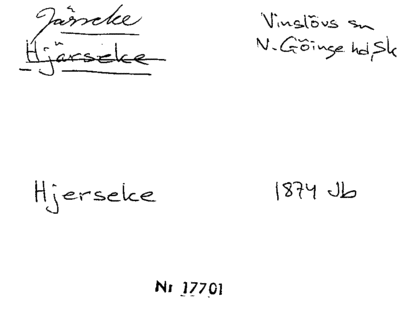 Järseke
Hjärseke
Vinslövs sn
V. Göinge hd, Sk
Hjerseke
1874 Jb
Nr 17701